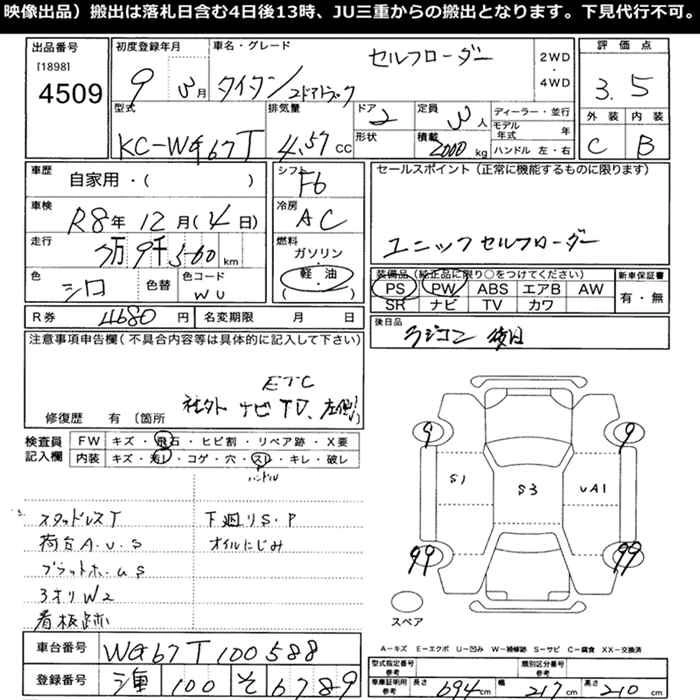 映像出品）搬出は落札日含む4日後13時、JU三重からの搬出となります。下見代行不可。
出品番号 初度登録年月 車名・グレード セルフローダー 2WD・4WD 評価点
[1898] 4509 9年3月 タイタン 2ドアトラック 3.5
型式 排気量 ドア 2 定員 3人 ディーラー・並行 外装 内装
KC-WG67T 4.57 CC 形状 積載 2000 kg モデル年式 年 ハンドル 左・右 C B
車歴 自家用・( ) シフト F6 セールスポイント（正常に機能するものに限ります）
車検 R8年12月(4日) 冷房 AC
走行 万9千560 km 燃料 ガソリン・軽・油 ( ) ユニックセルフローダー
色 シロ 色替 色コード WU 装備品（純正品に限り○をつけてください） 新車保証書
PS PW ABS エアB AW 有・無
SR ナビ TV カワ
R券 4680円 名変期限 月 日 後日品
ラジコン 後日
注意事項申告欄（不具合内容等は具体的に記入して下さい）
ETC
社外 ナビ TV、
修復歴 有 〔箇所
検査員記入欄 FW キズ・飛石・ヒビ割・リペア跡・X要
内装 キズ・汚レ・コゲ・穴・スレ・キレ・破レ
ハンドル
9 9
S1 S3 UA1
スタッドレスT 下廻りS.P
荷台A.U.S オイルにじみ
99 99
3オリW2
看板跡
スペア
A－キズ E－エクボ U－凹み W－補修跡 S－サビ C－腐食 XX－交換済
車台番号 WG67T100588
型式指定番号 類別区分番号
登録番号 三重 100 そ 6789
車庫証明用参考 長さ 694cm 幅 217cm 高さ 210cm